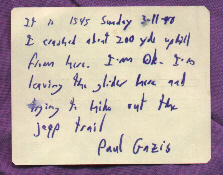 It is 1545 Sunday 3-11-90
I crashed about 200 yds uphill
from here. I'm OK. I'm
leaving the glider here and
trying to hike out the
jeep trail
Paul Gazis